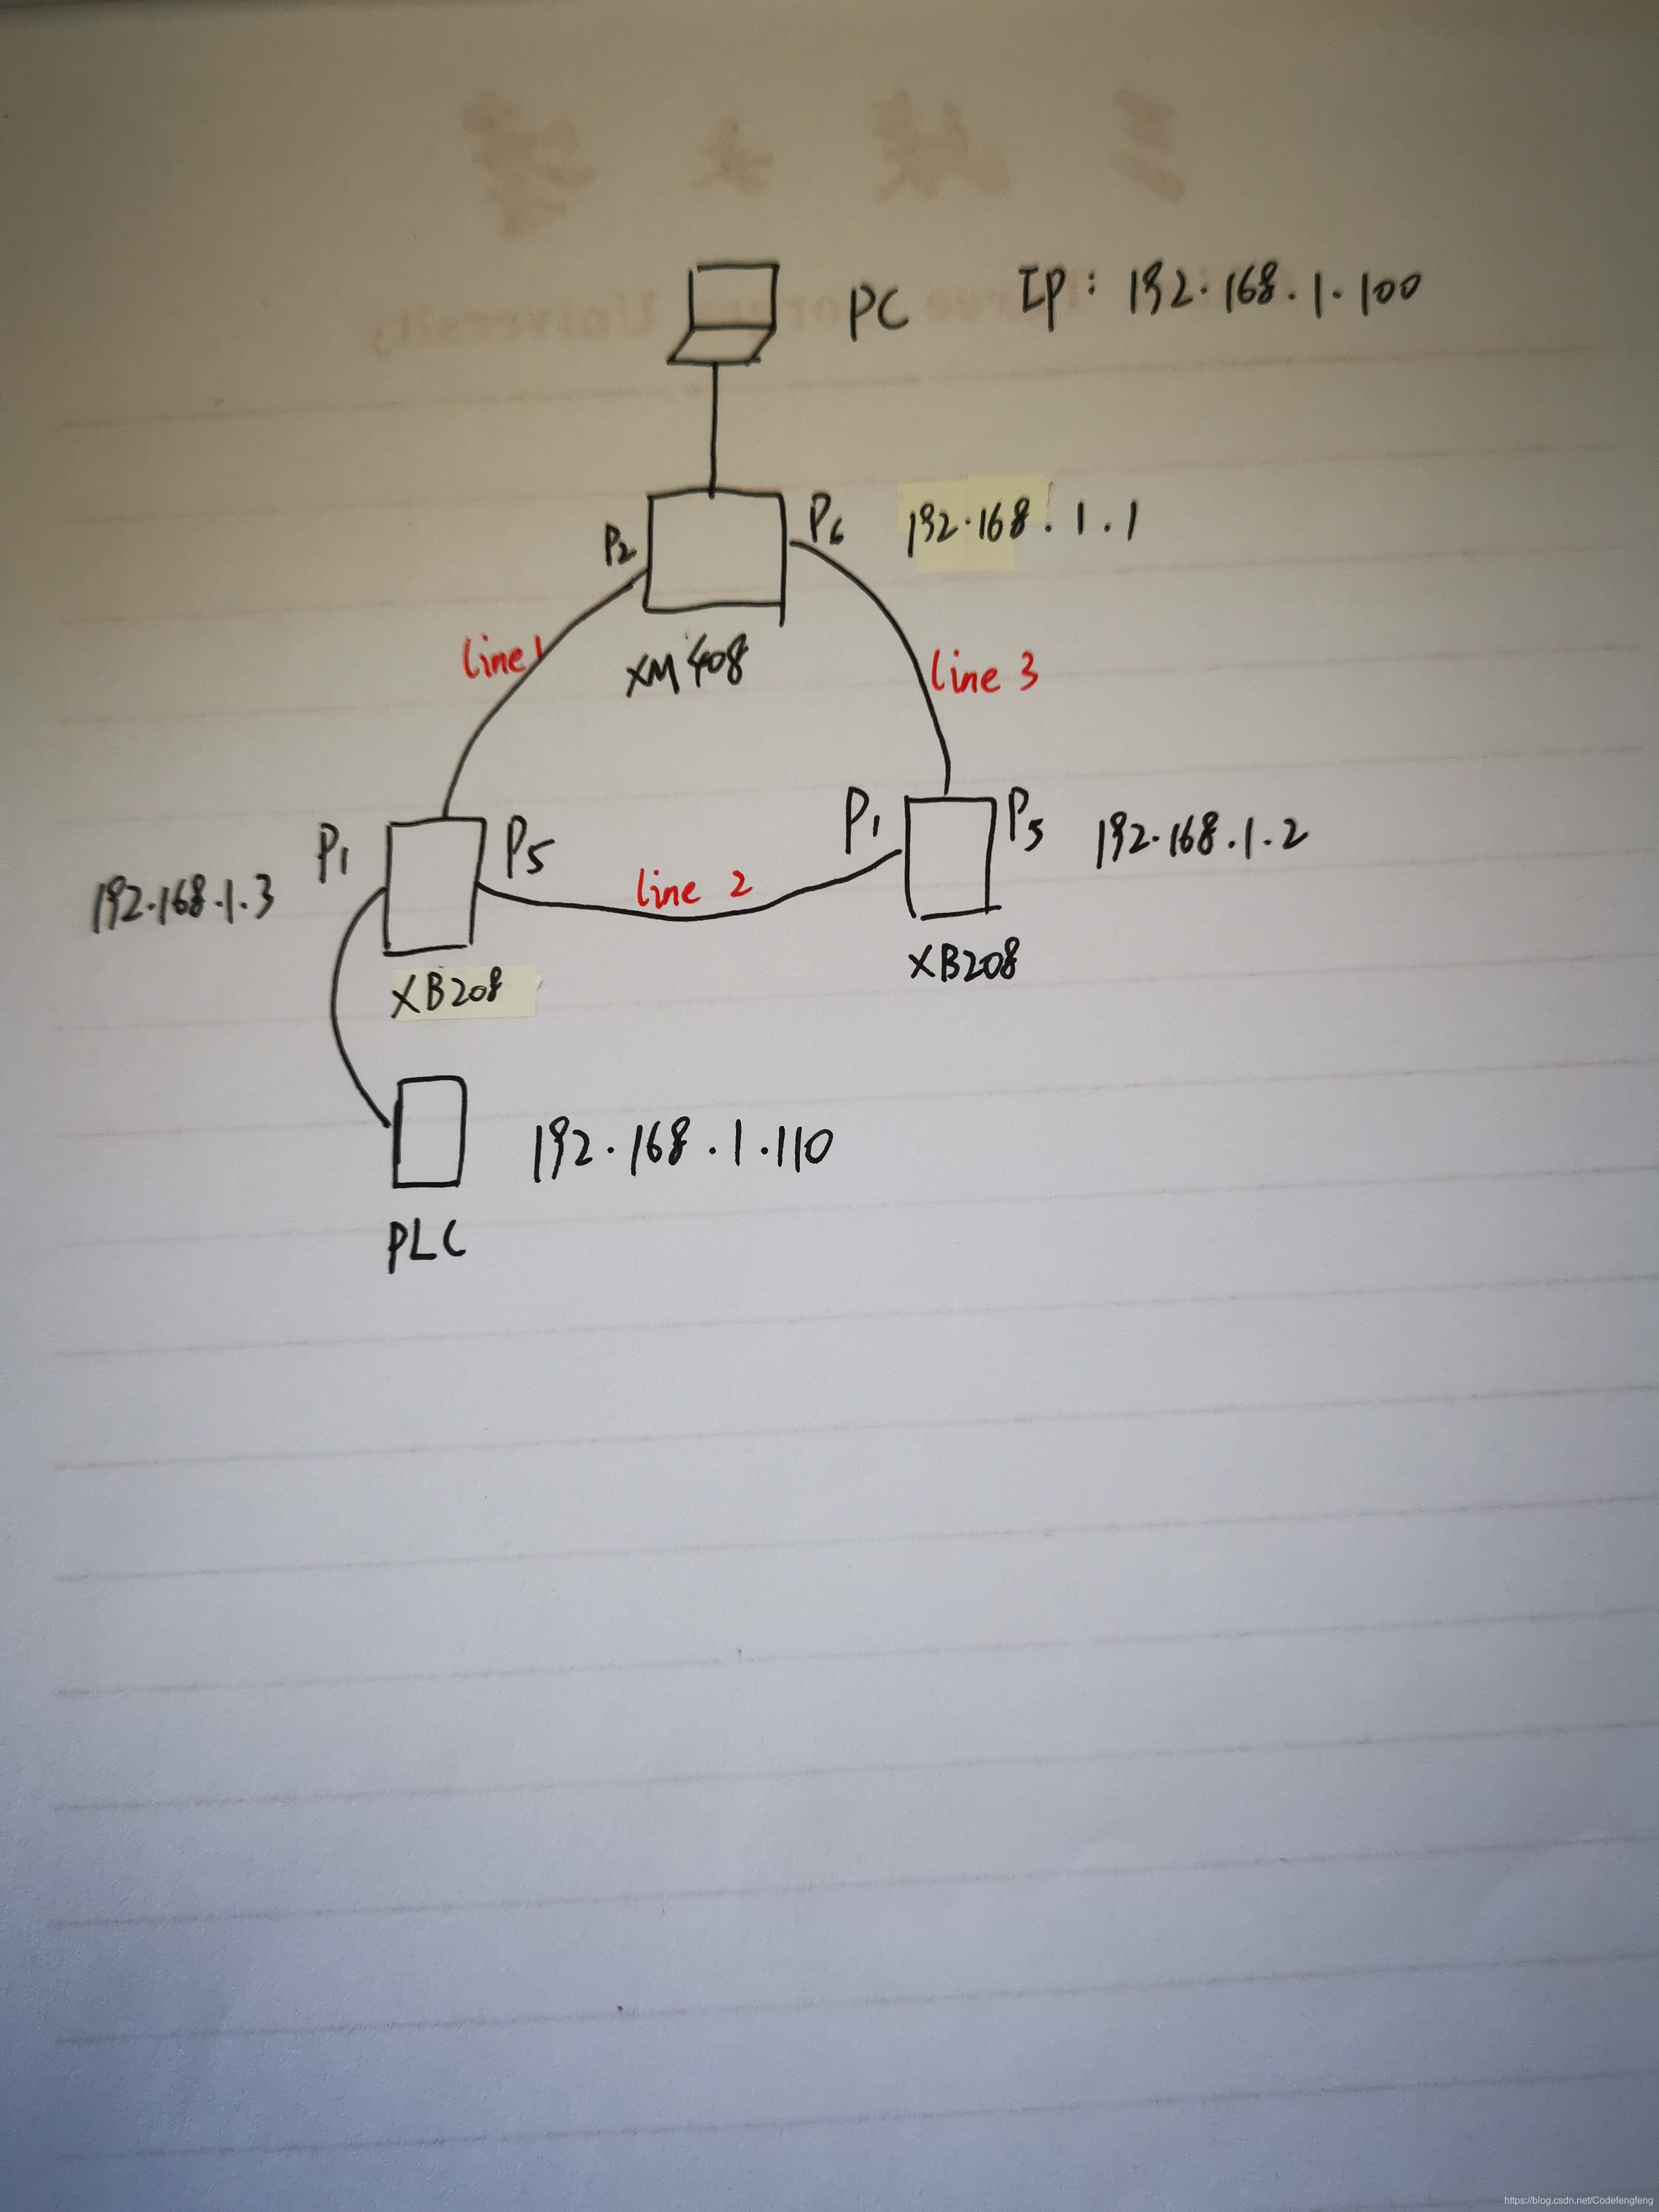 PC IP: 192.168.1.100
P2 P6 192.168.1.1
line 1 XM408 line 3
P1 P5 P1 P5 192.168.1.2
192.168.1.3 line 2
XB208 XB208
192.168.1.110
PLC
https://blog.csdn.net/Codefengfeng